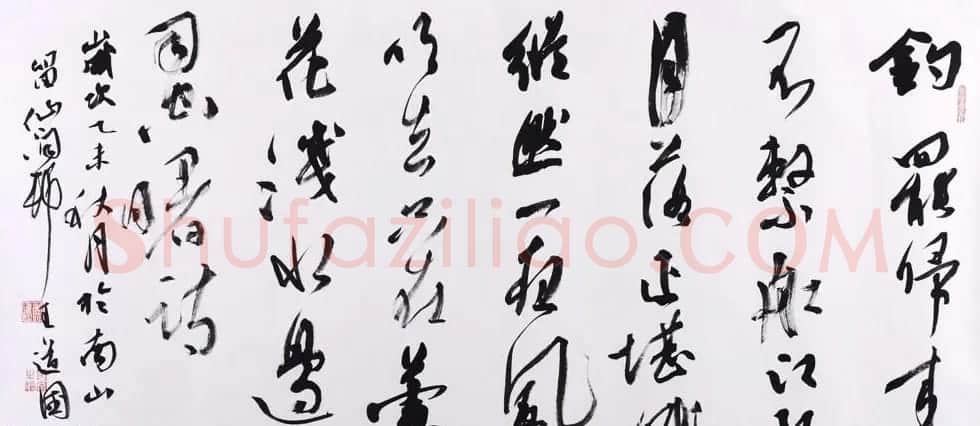 釣罷歸來
不繫船江村
月落正堪眠
縱然一夜風
吹去只在蘆
花淺水邊
司空曙詩
歲次乙未秋月於南山
留仙澗邨 王道國
Shufaziliao.COM